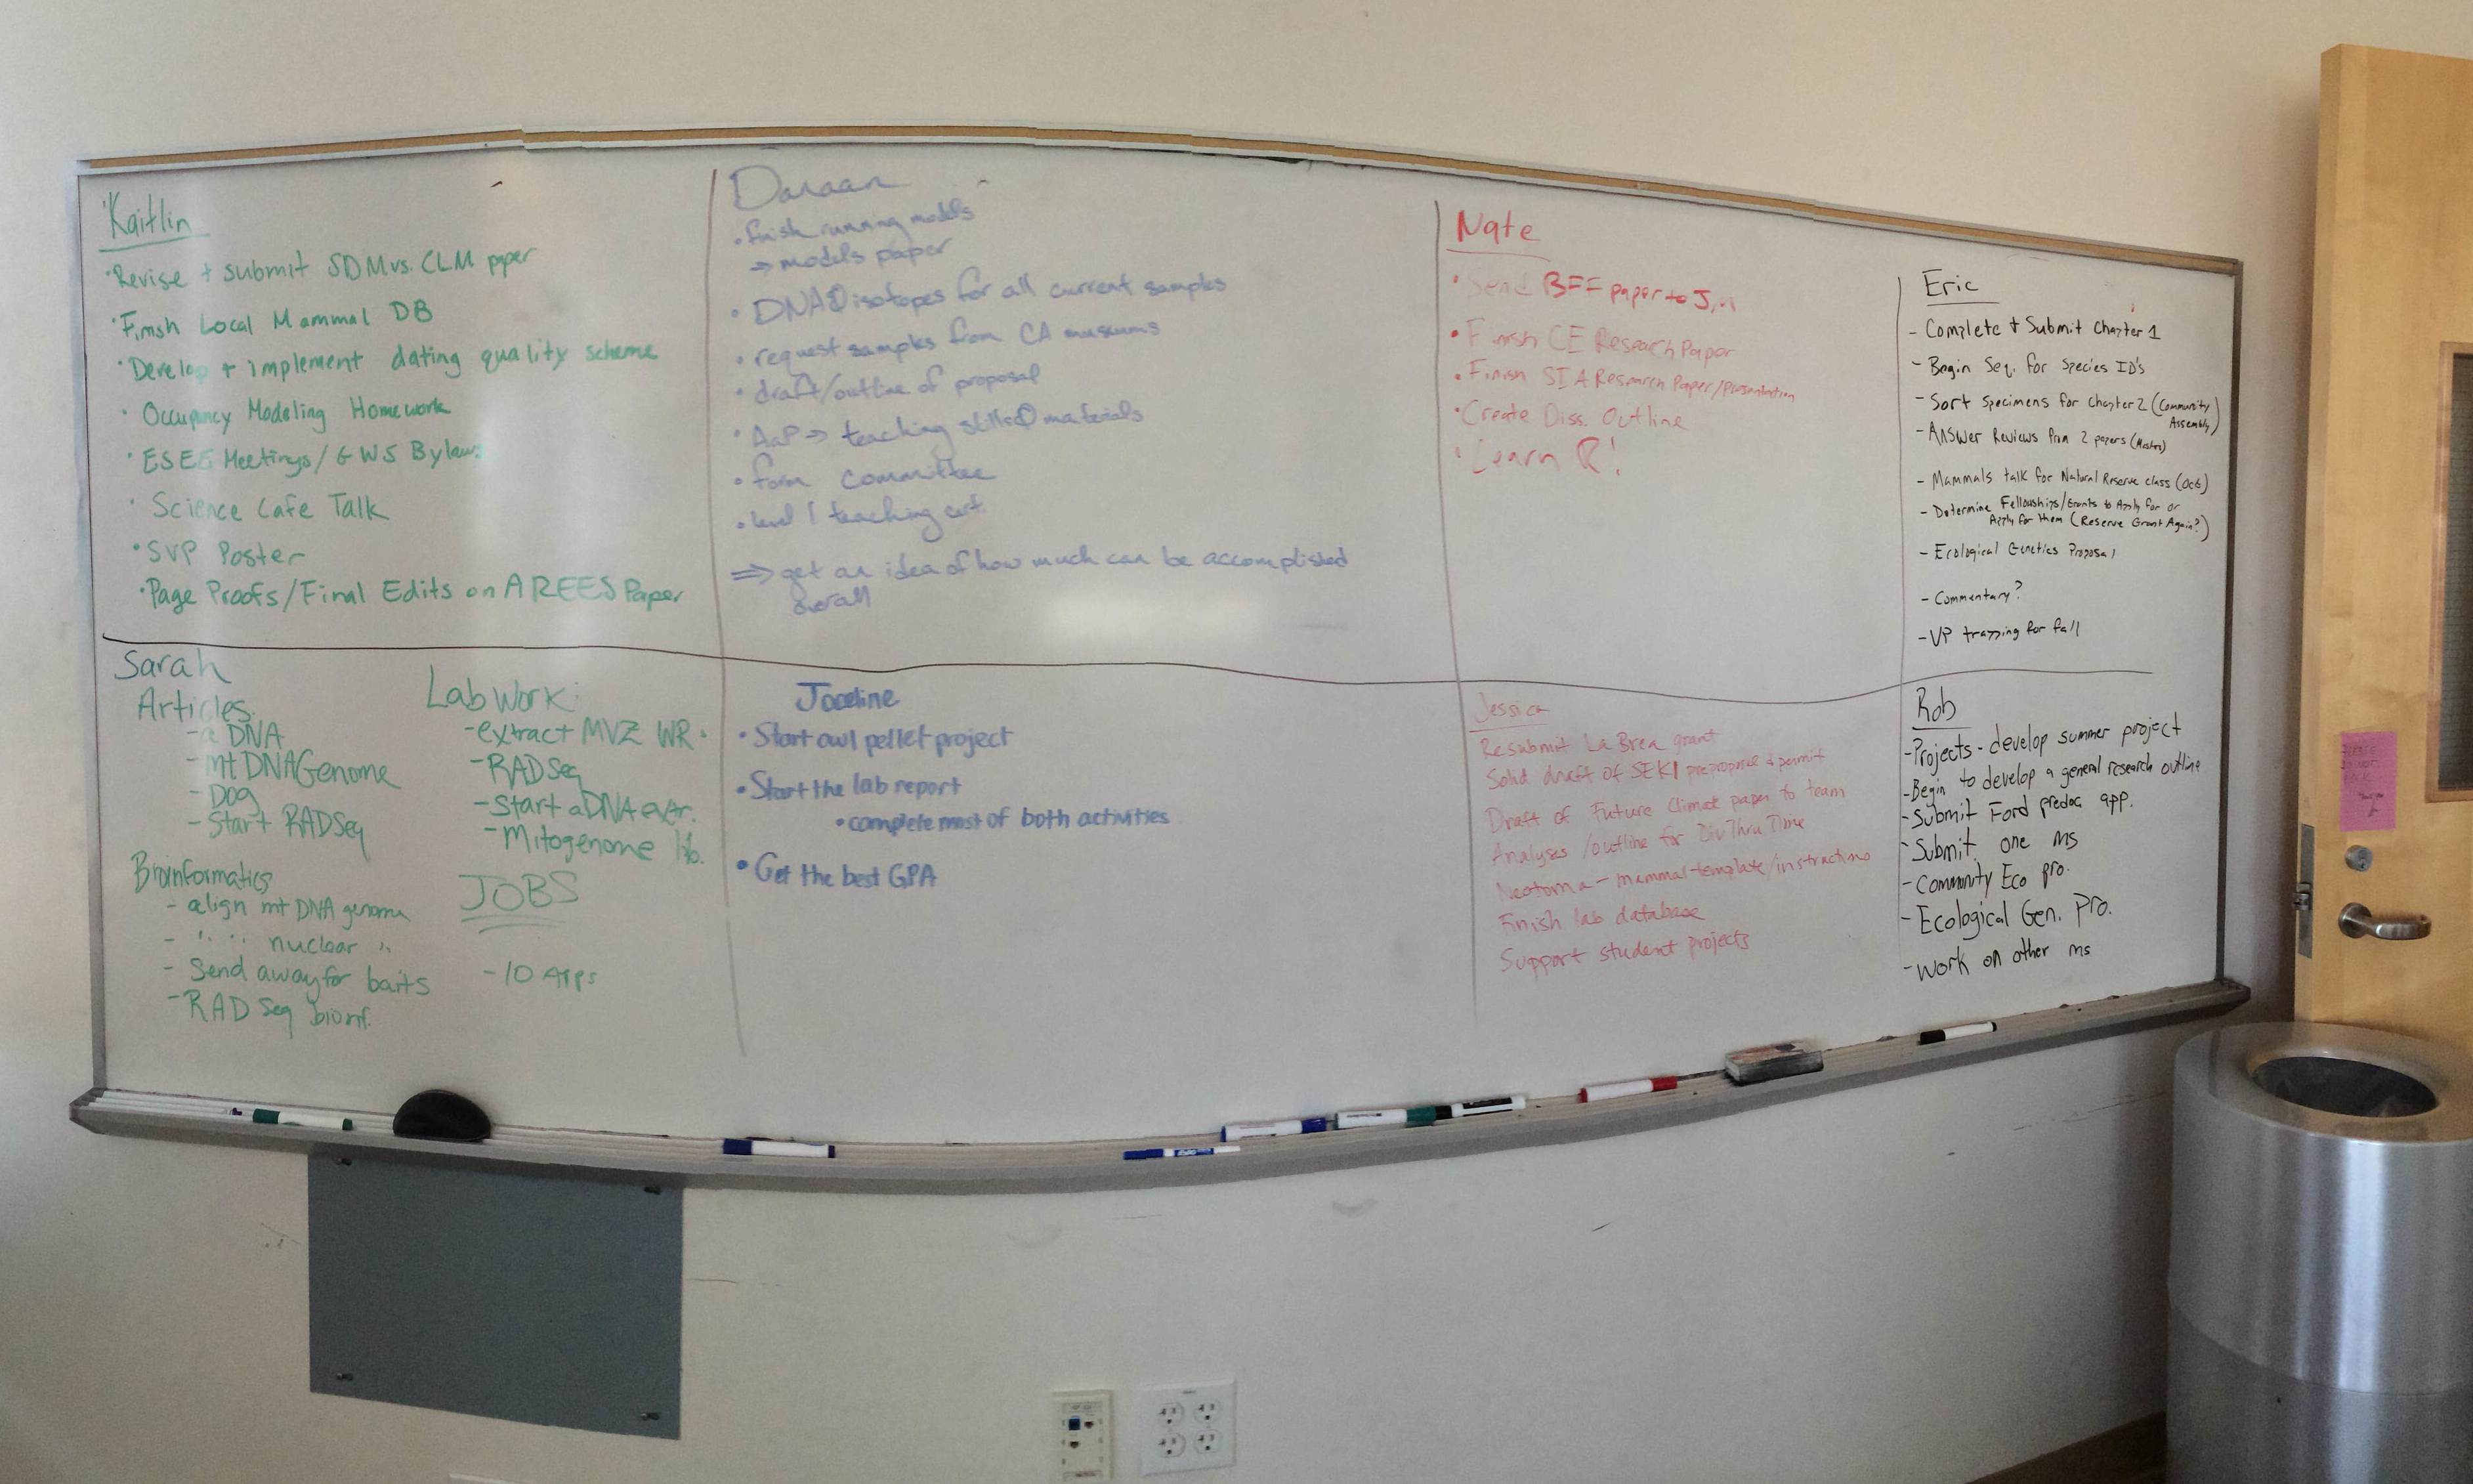 Kaitlin
·Revise + submit SDM vs. CLM paper
·Finish Local Mammal DB
·Develop + implement dating quality scheme
· Occupancy Modeling Homework
·ESEG Meetings/GWS Bylaws
· Science Cafe Talk
·SVP Poster
·Page Proofs/Final Edits on AREES Paper
Danaan
·finish running models
⇒ models paper
· DNA & isotopes for all current samples
· request samples from CA museums
· draft/outline of proposal
· AaP ⇒ teaching skills & materials
· form committee
· level 1 teaching cert.
⇒ get an idea of how much can be accomplished
overall
Nate
· Send BFF paper to Jim
· Finish CE Research Paper
· Finish SIA Research Paper/presentation
·Create Diss. Outline
· Learn R!
Eric
- Complete + Submit Chapter 1
- Begin Seq. for Species ID's
- Sort Specimens for Chapter 2 (Community
Assembly)
- Answer Reviews from 2 papers (Masters)
- Mammals talk for Natural Reserve class (Oct6)
- Determine Fellowships/Grants to Apply for or
Apply for them (Reserve Grant Again?)
- Ecological Genetics Proposal
- Commentary?
- VP trapping for fall
Sarah
Articles:
- aDNA
- mtDNAGenome
- Dog
- Start RADSeq
Bioinformatics
- align mtDNA genome
- " " nuclear "
- Send away for baits
- RAD Seq bioinf.
Lab Work:
- extract MVZ WR
- RADSeq
- Start aDNA extr.
- Mitogenome lib.
JOBS
- 10 Apps
Joceline
· Start owl pellet project
· Start the lab report
· complete most of both activities
· Get the best GPA
Jessica
Resubmit La Brea grant
Solid draft of SEKI preproposal + permit
Draft of Future Climate paper to team
Analyses/outline for DivThruTime
Neotoma - mammal template/instructions
Finish lab database
Support student projects
Rob
-Projects - develop summer project
-Begin to develop a general research outline
-Submit Ford predoc app.
-Submit one ms
-Community Eco pro.
-Ecological Gen. Pro.
-Work on other ms